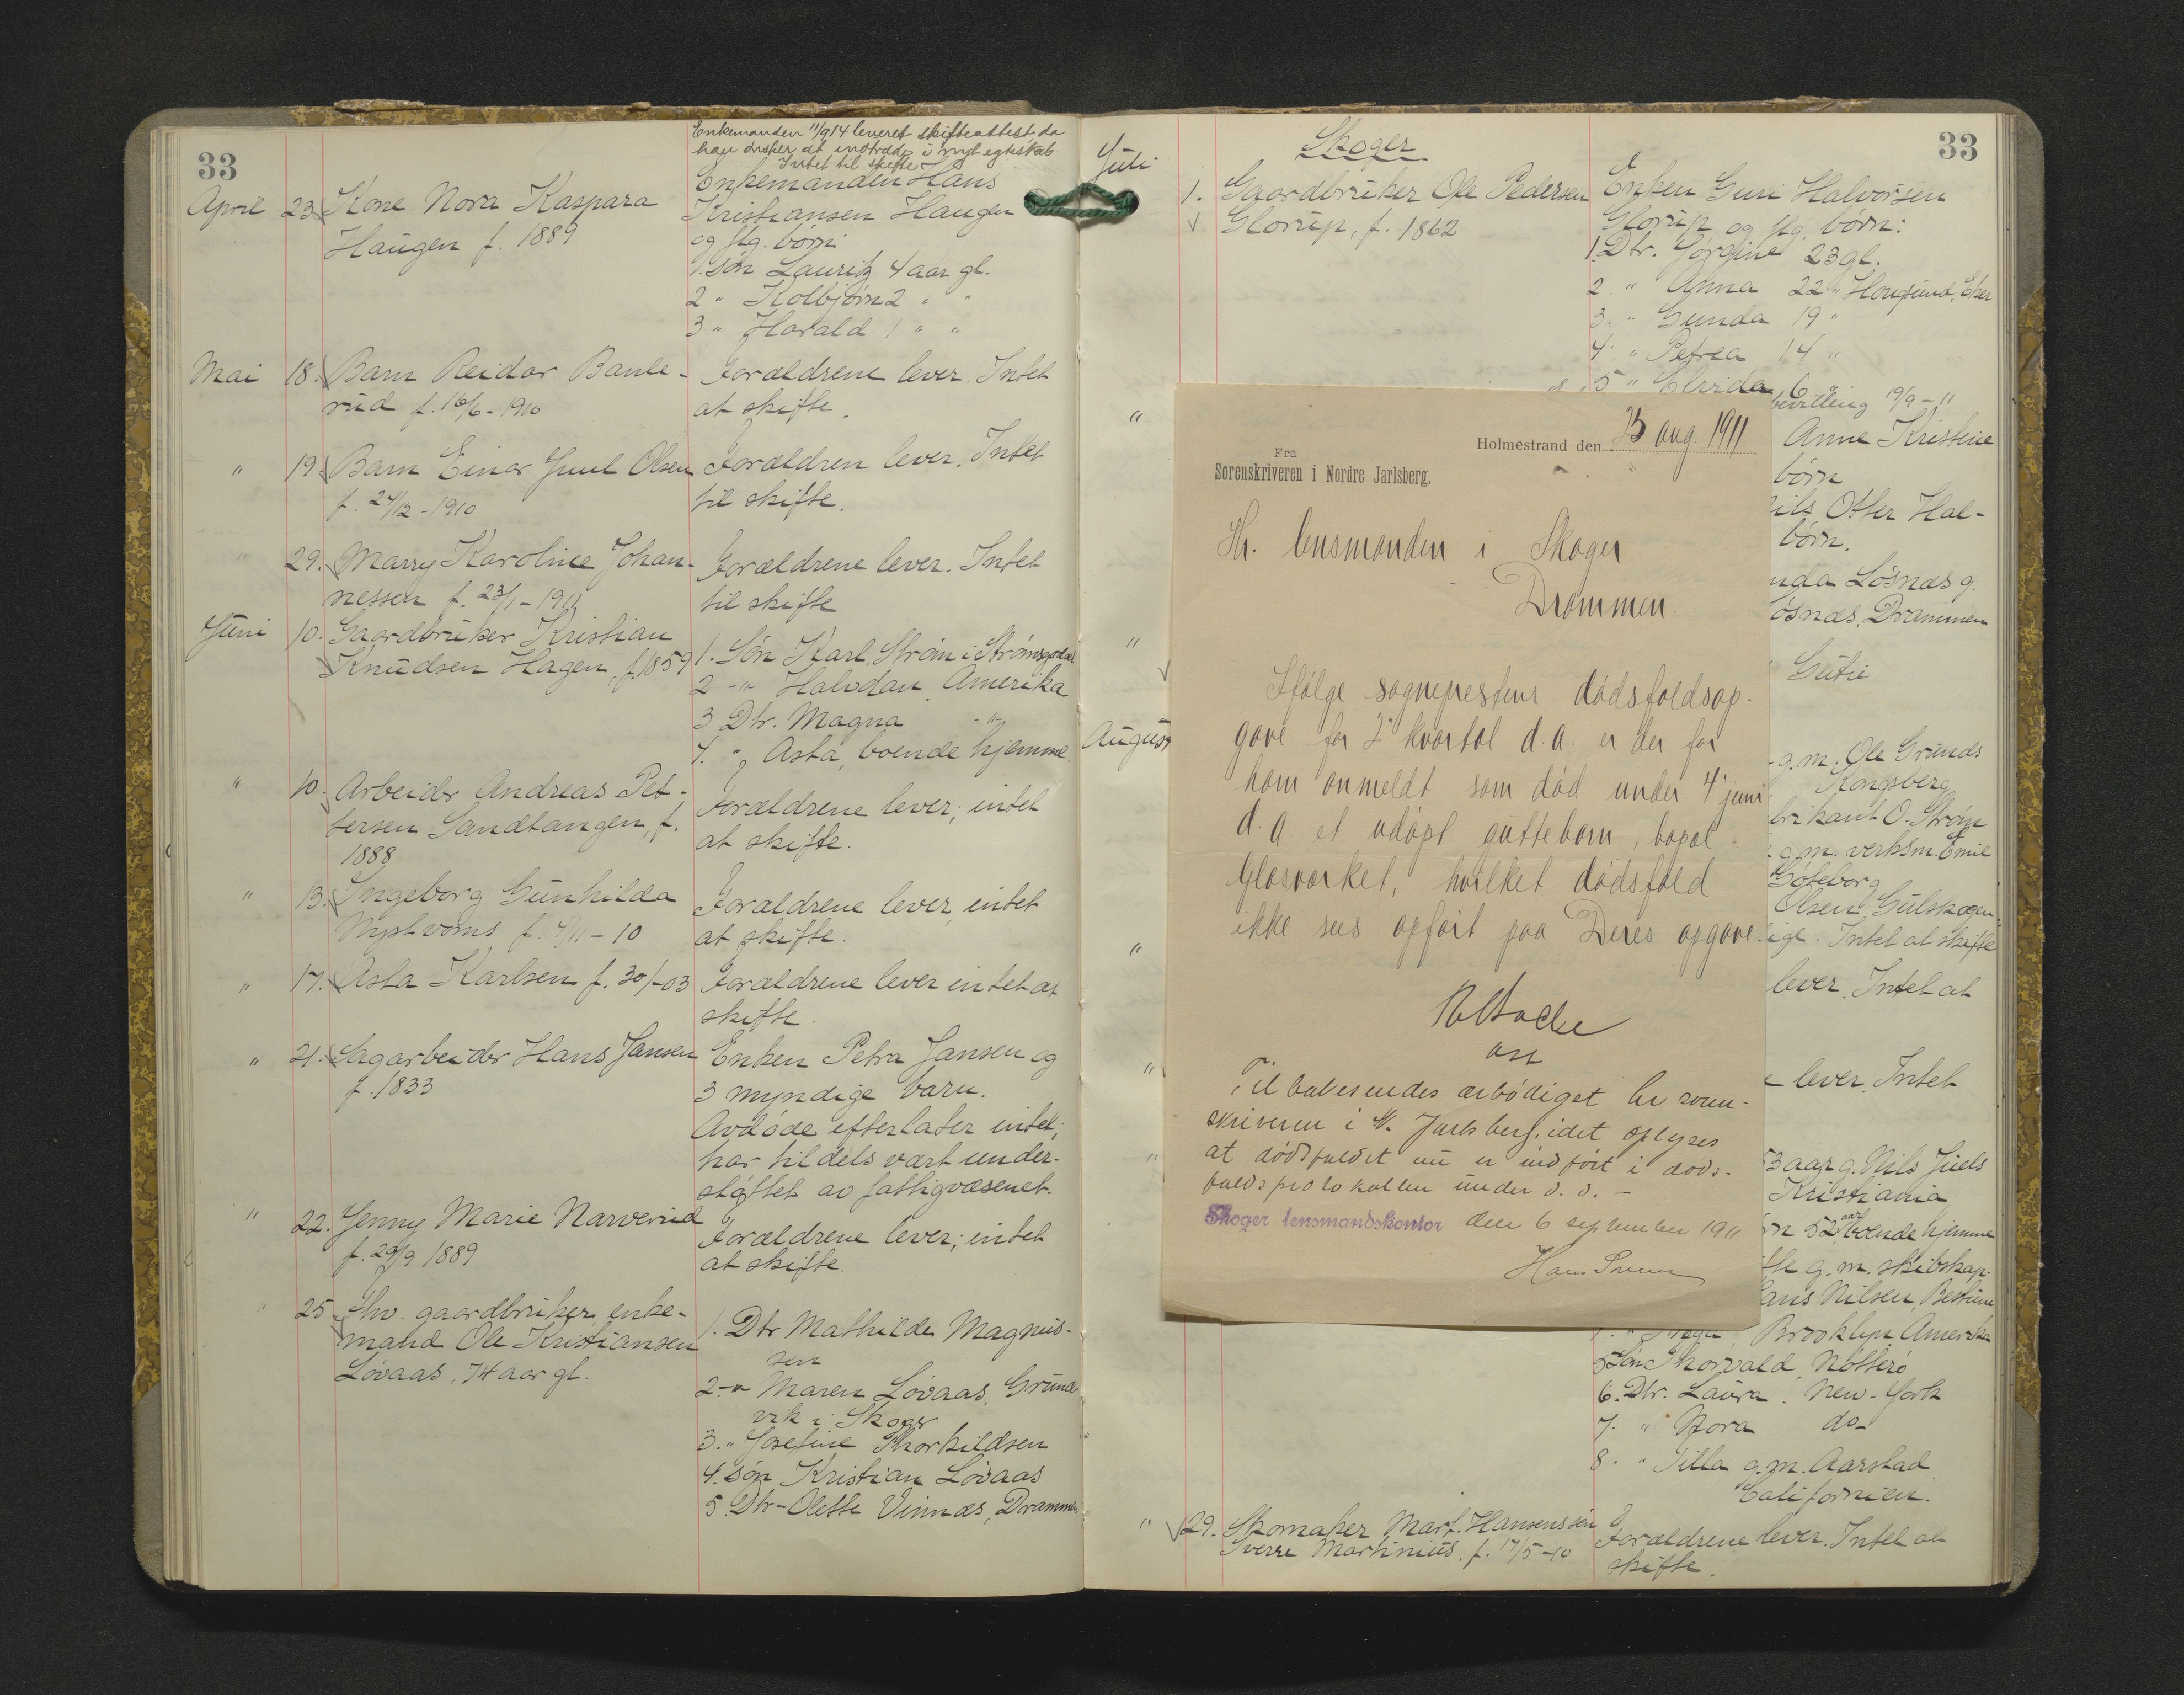 33
Enkemanden 11/9 14 leveret skifteattest, da
han ønsker at indtræde i nyt egteskab
Intet til skifte
April 23. Kone Nora Kaspara
Haugen f. 1889
Enkemanden Hans
Kristiansen Haugen
og flg. børn:
1. Søn Lauritz 4 aar gl.
2 " Kolbjørn 2 " "
3 " Harald 1 " "
Mai 18. Barn Reidar Banle-
rud f. 16/6 - 1910
Forældrene lever. Intet
at skifte.
" 19. Barn Einar Juul Olsen
f. 24/12 - 1910
Forældren lever. Intet
til skifte.
" 29. Marry Karoline Johan-
nessen f. 23/1 - 1911
Forældrene lever. Intet
til skifte
Juni 10. Gaardbruker Kristian
Knudsen Hagen, f. 1859
1. Søn Karl, Strøm i Strømsgodset
2 -"- Halvdan, Amerika
3 Dtr. Magna -"-
4. " Asta, boende hjemme.
" 10. Arbeider Andreas Pet-
tersen Sandtangen, f.
1888
Forældrene lever; intet
at skifte.
" 13. Ingeborg Gunhilda
f. 4/11 - 10
Forældrene lever, intet
at skifte.
" 17. Asta Karlsen f. 30/-03
Forældrene lever intet at
skifte.
" 21. Sagarbeider Hans Jansen
f. 1833
Enken Petra Jansen og
3 myndige barn.
Avdøde efterlater intet;
har tildels vært under-
støttet av fattigvæsenet.
" 22. Jenny Marie Narverud
f. 29/9 1889
Forældrene lever; intet
at skifte.
" 25. Fhv. gaardbruker, enke-
mand Ole Kristiansen
Løvaas, 74 aar gl.
1. Dtr Mathilde Magnus-
sen
2 -"- Maren Løvaas, Grunde
vik i Skoger
3. " Josefine Thorkildsen
4. Søn Kristian Løvaas
5. Dtr - Olette Vinnæs, Drammen
33
Skoger
Juli
1. Gaardbruker Ole Pedersen
Glorup, f. 1862
Enken Guri Halvorsen
Glorup og flg. børn:
1. Dtr. Jørgine 23 gl.
2. " Anna 22 " Hougsund, Eker
3. " Gunda 19 "
4. " Petrea 14 "
5 " Elvida 6 "
bevilling 19/9 - 11
Anne Kristine
børn
Nils Otter Hal-
børn.
nda Løsnæs g.
øsnæs, Drammen
August
g. m. Ole Grunds
Kongsberg
brikant O. Strøm
g. m. verksm. Emil
Gøteborg
Olsen, Gulskogen
ege. Intet at skifte
lever. Intet at
lever. Intet
53 aar g. Nils Juels
Kristiania
52 aar boende hjemme
g. m. skibskap.
ans Nilsen,
Brooklyn Amerika
5 Søn Thorvald, Nøtterø
6. Dtr. Laura. New-York
7. " Nora do-
8. " Tilla g. m. Aarstad
Californien.
" 29. Skomaker Mart. Hansens søn
Sverre Martinius, f. 17/5 - 10
Forældrene lever. Intet at
skifte.
Holmestrand den 25 aug. 1911
Fra
Sorenskriveren i Nordre Jarlsberg.
Hr. lensmanden i Skoger
Drammen.
Ifølge sogneprestens dødsfaldsop-
gave for 2' kvartal d.a. er der for
ham anmeldt som død under 4' juni
d.a. et udøpt guttebarn, bopæl
Glasværket, hvilket dødsfald
ikke sees opført paa Deres opgave.
Tilbakesendes ærbødigst hr soren-
skriveren i N. Jarlsberg, idet oplyses
at dødsfaldet nu er indført i døds-
faldsprotokollen under d. d. -
Skoger lensmandskontor den 6 september 1911